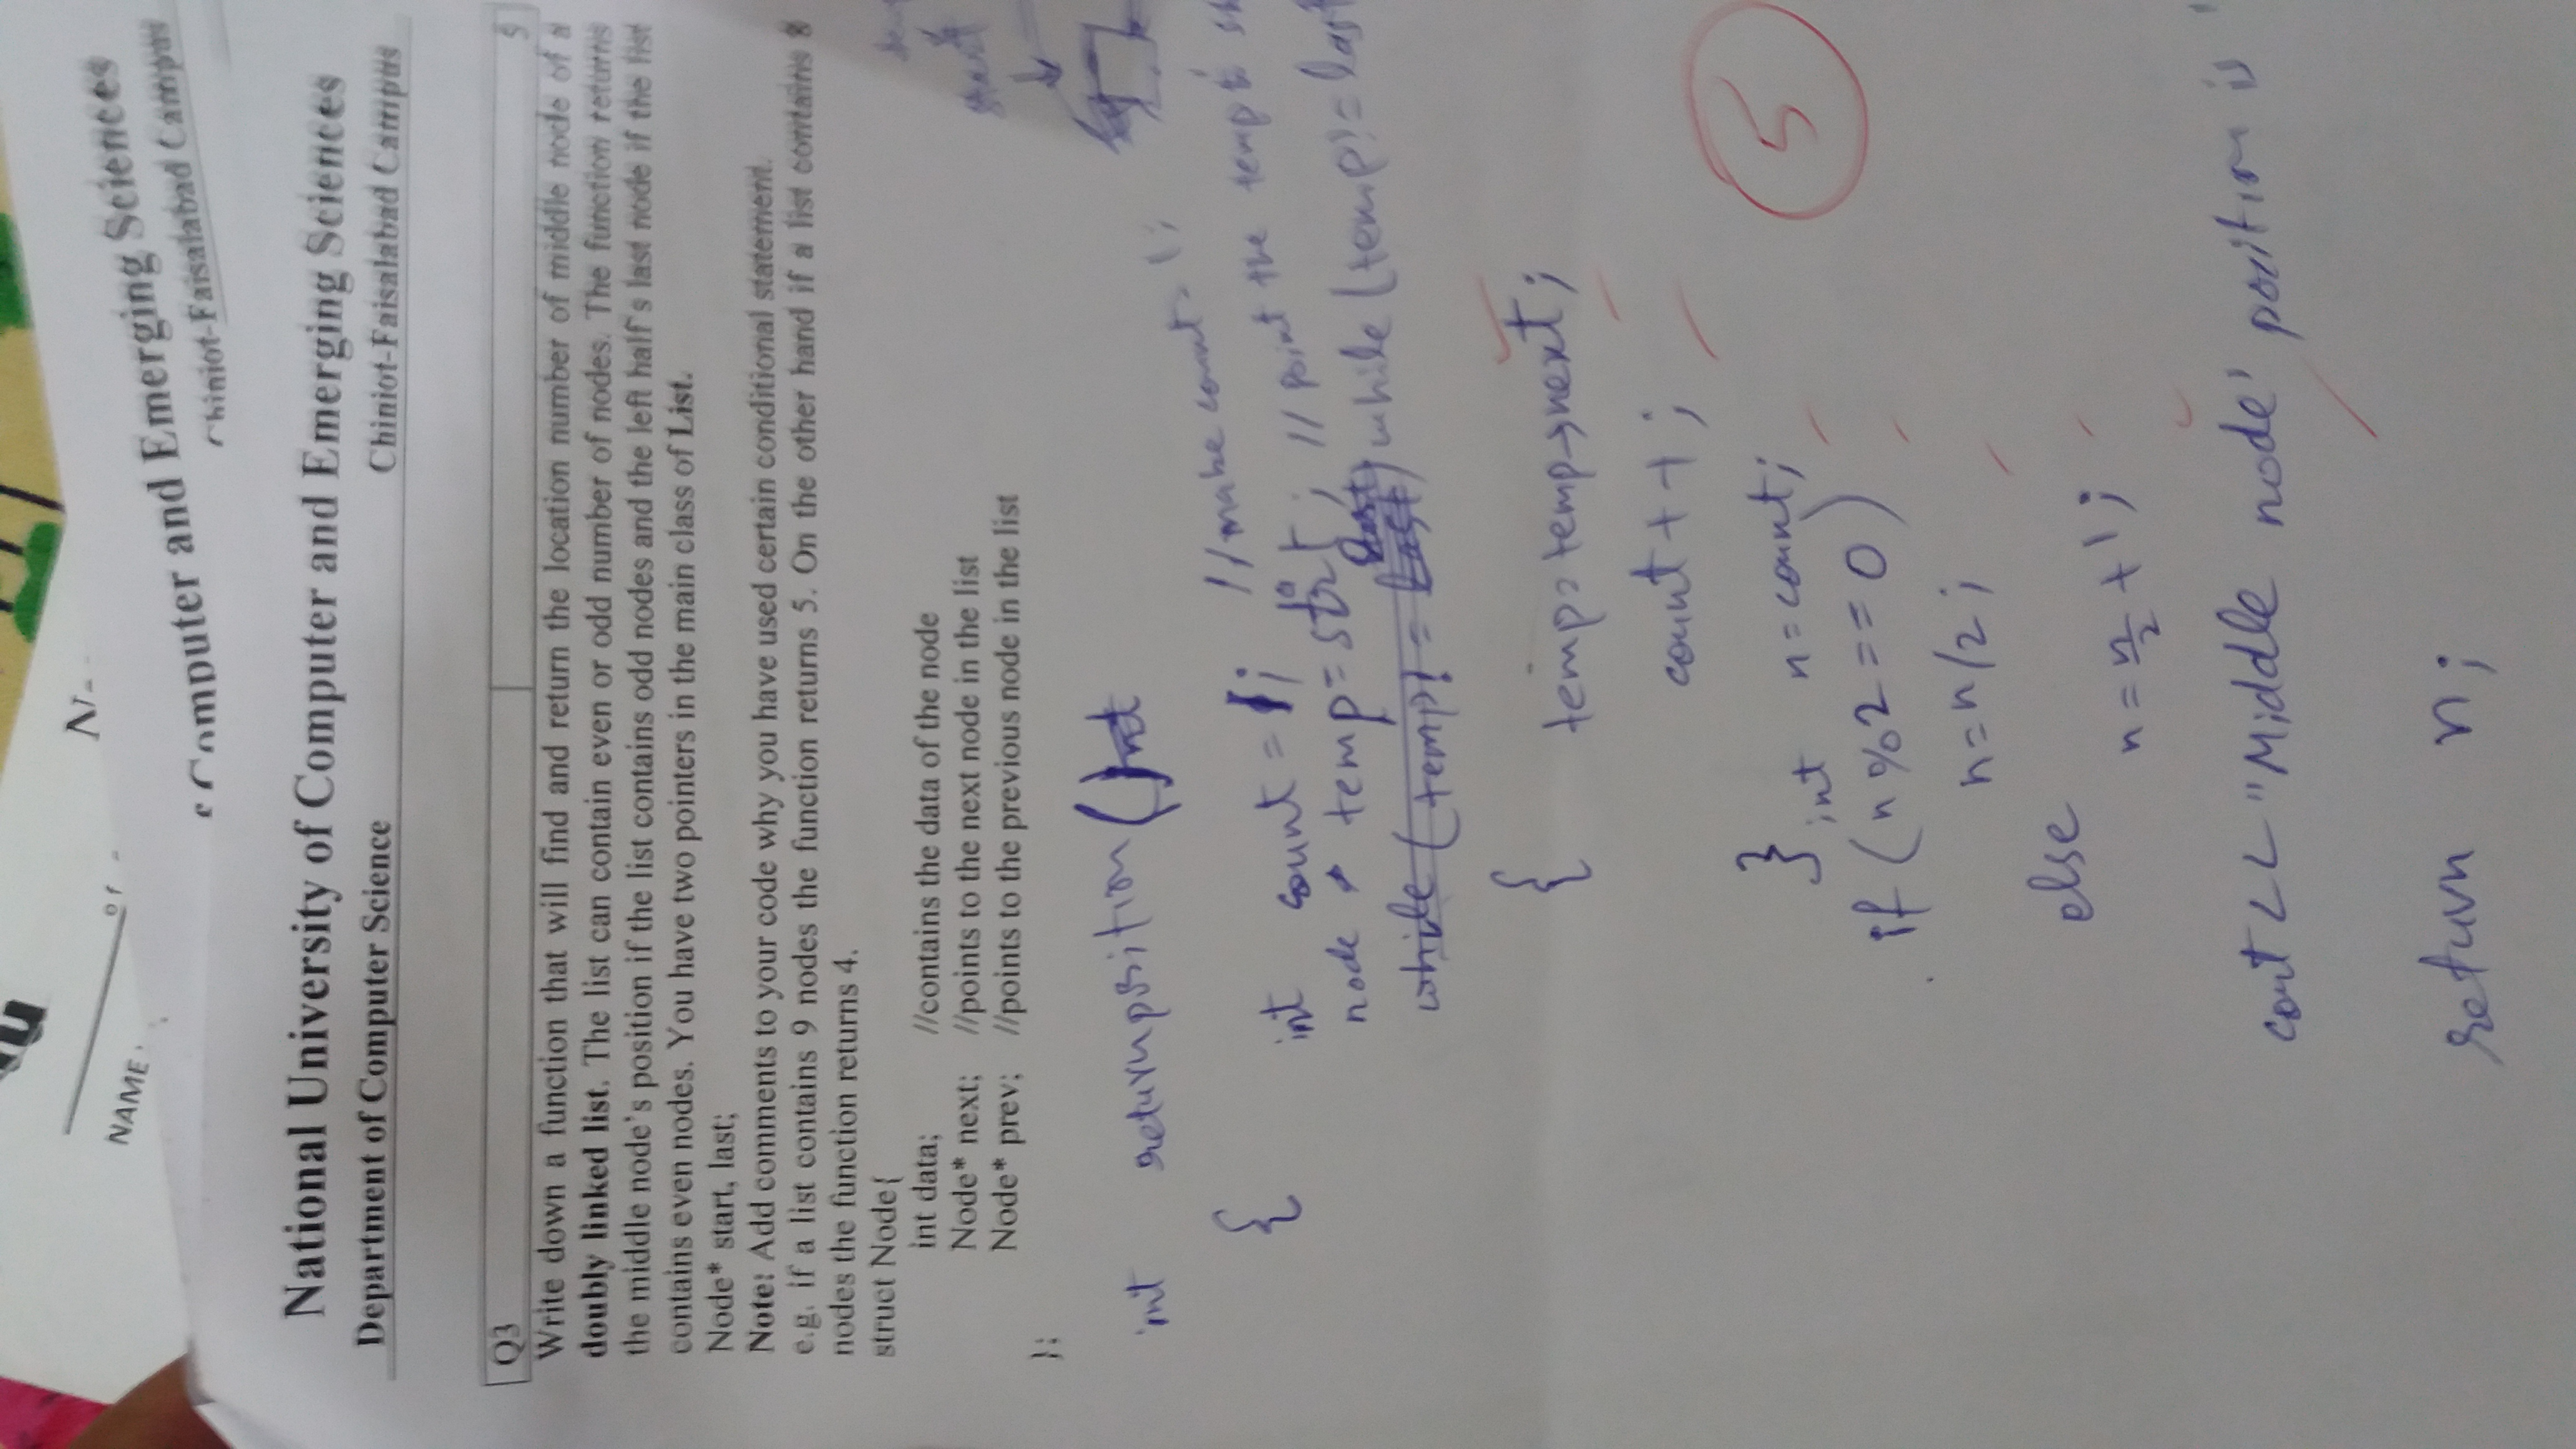 NAME:
Computer and Emerging Sciences
Chiniot-Faisalabad Campus
National University of Computer and Emerging Sciences
Department of Computer Science Chiniot-Faisalabad Campus
Q3 5
Write down a function that will find and return the location number of middle node of a
doubly linked list. The list can contain even or odd number of nodes. The function returns
the middle node's position if the list contains odd nodes and the left half's last node if the list
contains even nodes. You have two pointers in the main class of List.
Node* start, last;
Note: Add comments to your code why you have used certain conditional statement.
e.g. if a list contains 9 nodes the function returns 5. On the other hand if a list contains 8
nodes the function returns 4.
struct Node{
int data; //contains the data of the node
Node* next; //points to the next node in the list
Node* prev; //points to the previous node in the list
};
start
int returnposition()
{ int count = 1; //make count = 1;
node * temp = strt; // point the temp to
while (temp! = last) while (temp! = last
{ temp = temp→next;
count++;
} int n = count;
5
if (n%2 == 0)
n = n/2;
else
n = n/2 + 1;
cout << "Middle node' position is "
return n;